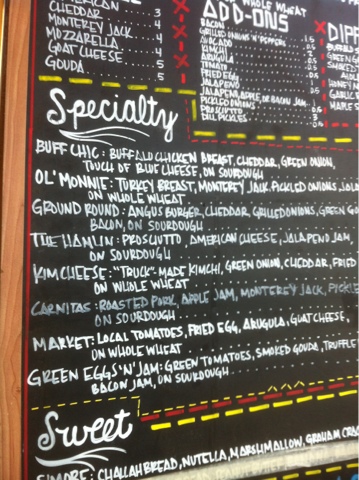 AMERICAN
CHEDDAR 3
MONTEREY JACK 4
MOZZARELLA 4
GOAT CHEESE 5
GOUDA 5
WHOLE WHEAT
ADD-ONS
BACON 1.5
GRILLED ONIONS 'N' PEPPERS
AVOCADO
KIMCHI
ARUGULA
TOMATO
FRIED EGG
JALAPENO
JALAPENO, APPLE, OR BACON JAM
PICKLED ONIONS
PROSCIUTTO
DILL PICKLES
DIPP
Specialty
BUFF CHIC: BUFFALO CHICKEN BREAST, CHEDDAR, GREEN ONION,
TOUCH OF BLUE CHEESE, ON SOURDOUGH
OL' MONNIE: TURKEY BREAST, MONTEREY JACK, PICKLED ONIONS
ON WHOLE WHEAT
GROUND ROUND: ANGUS BURGER, CHEDDAR, GRILLED ONIONS, GREEN
BACON, ON SOURDOUGH
THE HAMLIN: PROSCIUTTO, AMERICAN CHEESE, JALAPENO JAM,
ON SOURDOUGH
KIMCHEESE: "TRUCK"-MADE KIMCHI, GREEN ONION, CHEDDAR, FRIED
ON WHOLE WHEAT
CARNITAS: ROASTED PORK, APPLE JAM, MONTEREY JACK, PICKLE
ON SOURDOUGH
MARKET: LOCAL TOMATOES, FRIED EGG, ARUGULA, GOAT CHEESE,
ON WHOLE WHEAT
GREEN EGGS 'N' JAM: GREEN TOMATOES, SMOKED GOUDA, TRUFFLE
BACON JAM, ON SOURDOUGH
Sweet
S'MORE: CHALLAH BREAD, NUTELLA, MARSHMALLOW, GRAHAM CRAC